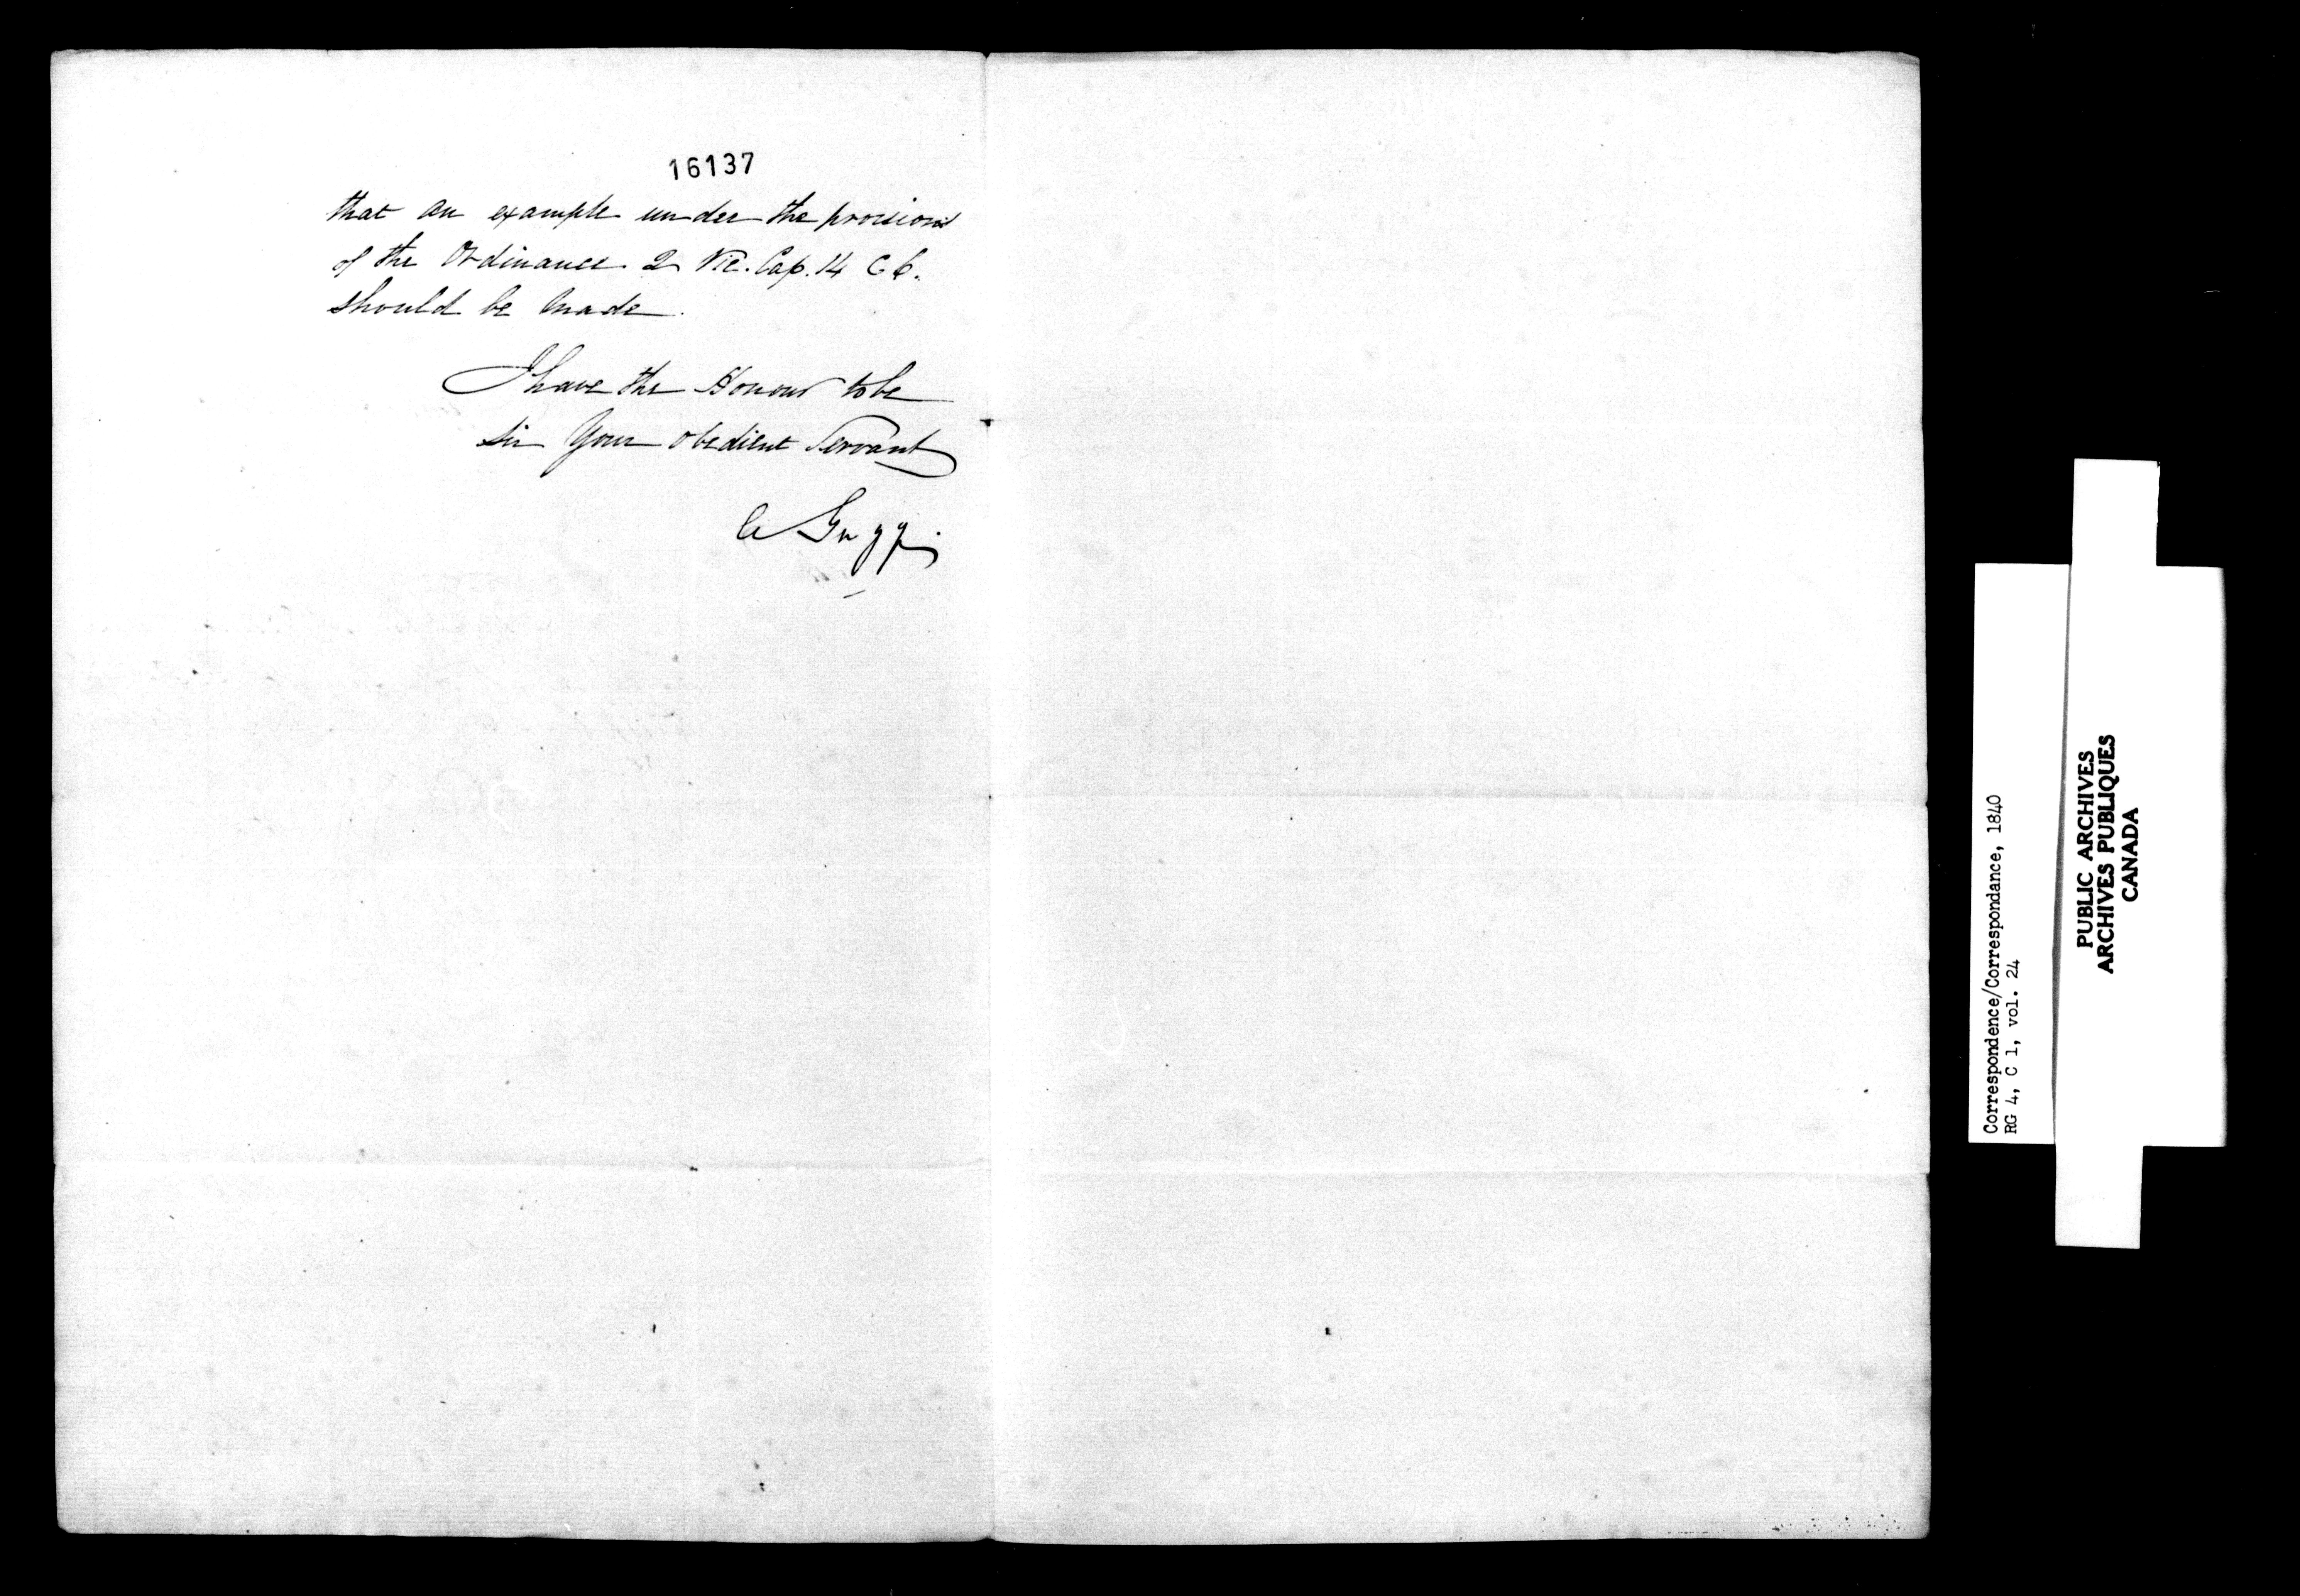 16137
that an example under the provisions
of the Ordinance 2 Vic. Cap. 14 C 6.
should be made.
I have the Honour to be
Sir Your obedient Servant
Gugy
Correspondence/Correspondance, 1840
RG 4, C 1, vol. 24
PUBLIC ARCHIVES
ARCHIVES PUBLIQUES
CANADA